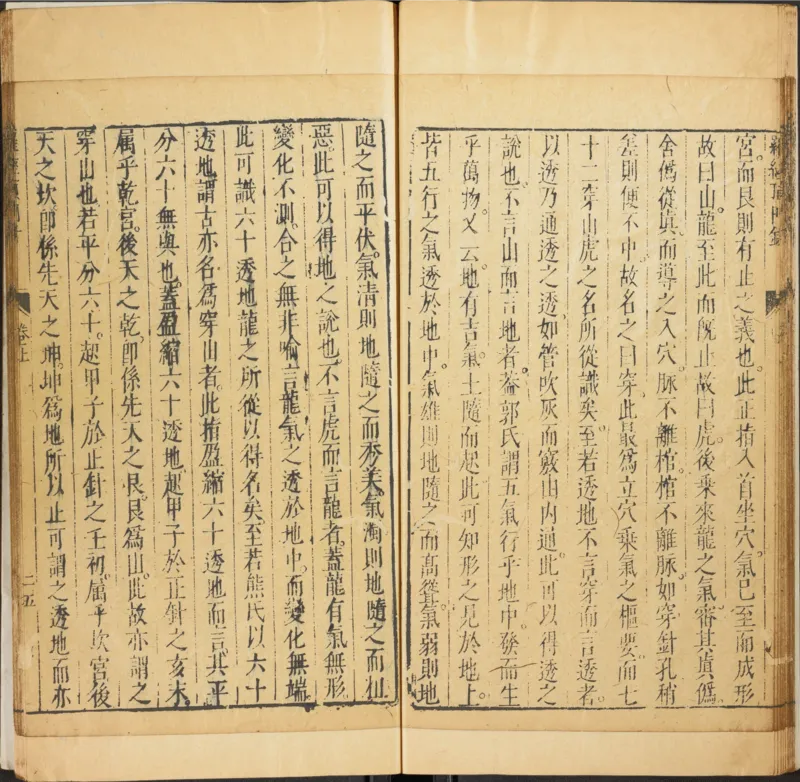 宮而艮則有止之義也。此正指入首坐穴。氣已至而成形
故曰山。龍至此而旣止故曰虎。後乘來龍之氣審其眞僞。
舍僞從眞而導之入穴。脈不離棺。棺不離脈如穿針孔稍
差則便不中。故名之曰穿。此最爲立穴乘氣之樞要。而七
十二穿山虎之名所從識矣。至若透地不言穿而言透者。
以透乃通透之透。如管吹灰而竅山內通。此可以得透之
說也。不言山而言地者。葢郭氏謂五氣行乎地中。發而生
乎萬物。又云。地有吉氣。土隨而起此可知形之見於地上。
皆五行之氣透於地中。氣雄則地隨之而高聳。氣弱則地
隨之而平伏。氣清則地隨之而秀美。氣濁則地隨之而凶
惡。此可以得地之說也。不言虎而言龍者。蓋龍有氣無形。
變化不測。合之無非喻言龍氣之透於地中。而變化無端。
此可識六十透地龍之所從以得名矣。至若熊氏以六十
透地謂古亦名爲穿山者。此指盈縮六十透地而言。其平
分六十無與也。蓋盈縮六十透地。起甲子於正針之亥末。
屬乎乾宮。後天之乾。卽係先天之艮。艮爲山。此故亦謂之
穿山也。若平分六十。起甲子於正針之壬初。屬乎坎宮。後
天之坎卽係先天之坤。坤爲地。所以止可謂之透地而亦
卷上
二五